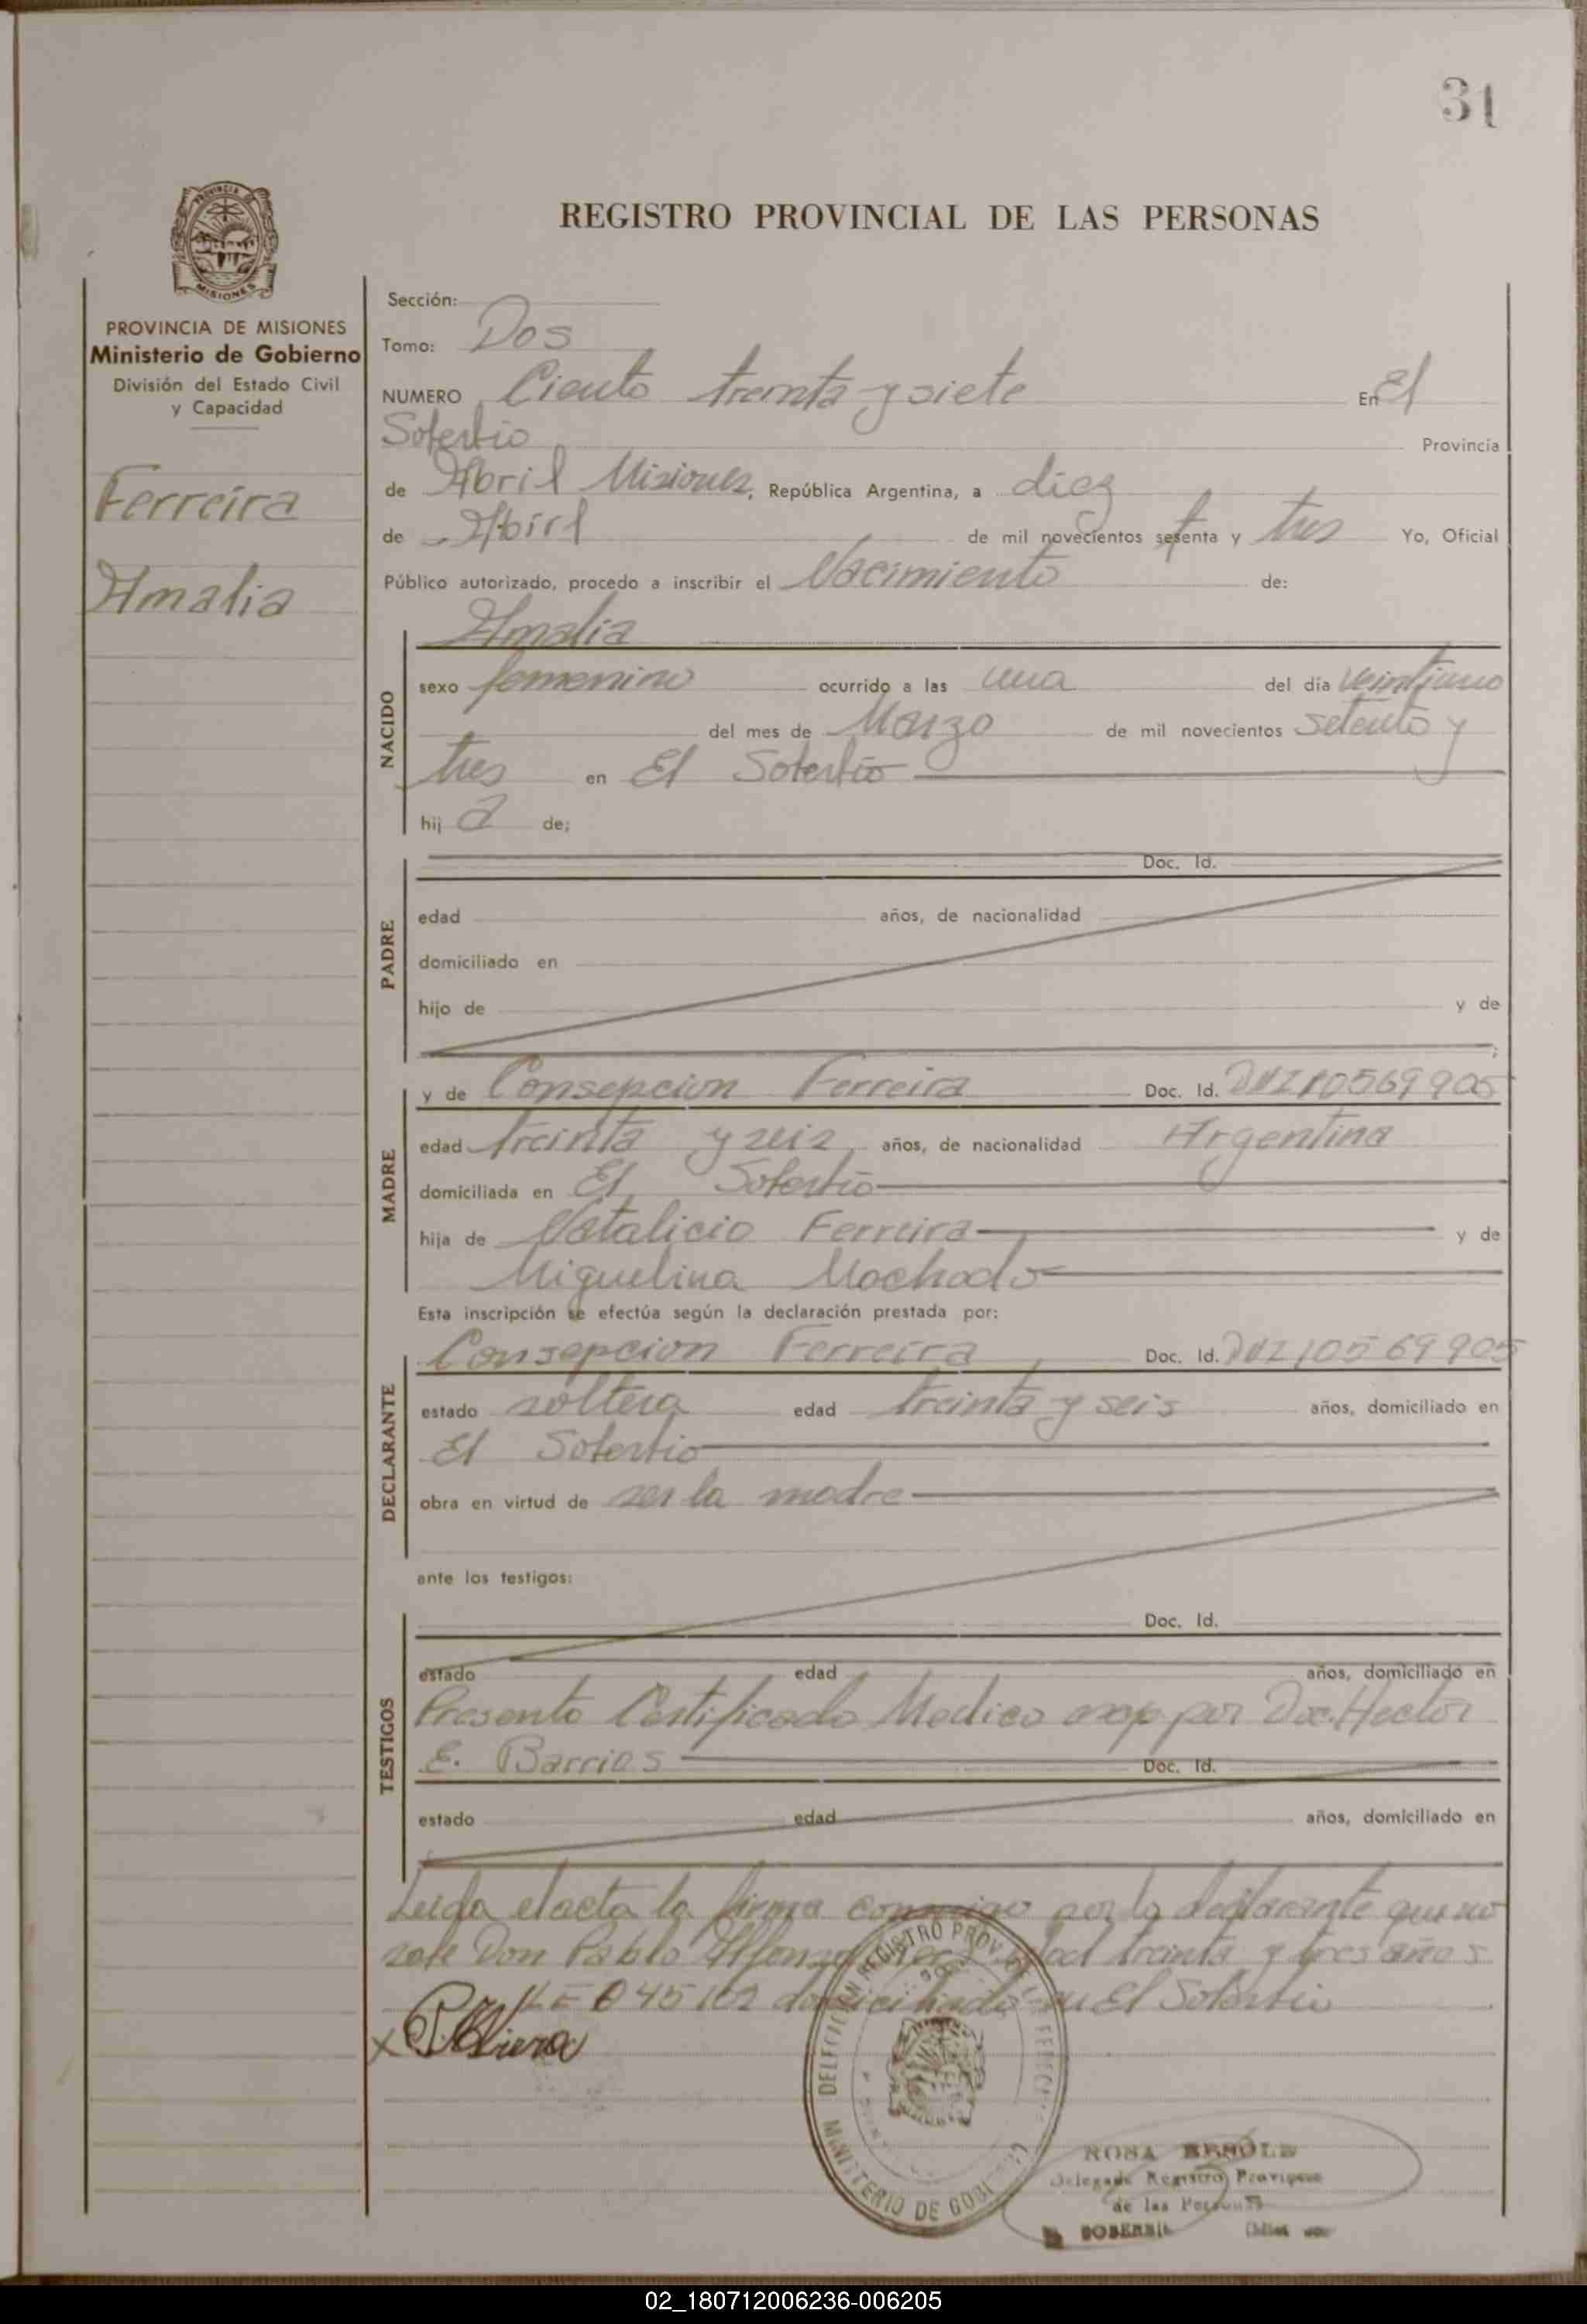 31
REGISTRO PROVINCIAL DE LAS PERSONAS
PROVINCIA DE MISIONES
PROVINCIA DE MISIONES
Ministerio de Gobierno
División del Estado Civil
y Capacidad
Ferreira
Amalia
Sección:
Tomo: Dos
NUMERO Ciento treinta y siete En El
Soberbio Provincia
de Abril Misiones, República Argentina, a diez
de Abril de mil novecientos setenta y tres Yo, Oficial
Público autorizado, procedo a inscribir el Nacimiento de:
Amalia
NACIDO
sexo femenino ocurrido a las una del día veintiuno
del mes de Marzo de mil novecientos setenta y
tres en El Soberbio
hij a de;
PADRE
Doc. Id.
edad años, de nacionalidad
domiciliado en
hijo de y de
MADRE
y de Consepcion Ferreira Doc. Id. DNI 10569905
edad treinta y seis años, de nacionalidad Argentina
domiciliada en El Soberbio
hija de Natalicio Ferreira y de
Miguelina Machado
Esta inscripción se efectúa según la declaración prestada por:
DECLARANTE
Consepcion Ferreira Doc. Id. DNI 10569905
estado soltera edad treinta y seis años, domiciliado en
El Soberbio
obra en virtud de ser la madre
ante los testigos:
TESTIGOS
Doc. Id.
estado edad años, domiciliado en
Presento Certificado Medico por Doc. Hector
E. Barrios Doc. Id.
estado edad años, domiciliado en
Leida el acta la firma conmigo por la declarante que no
sabe Don Pablo edad treinta y tres años
domiciliado en El Soberbio
DELEGACION REGISTRO PROV. DE
MINISTERIO DE GOBIERNO
ROSA
Delegada Registro Provincial
de las Personas
SOBERBIO
02_180712006236-006205